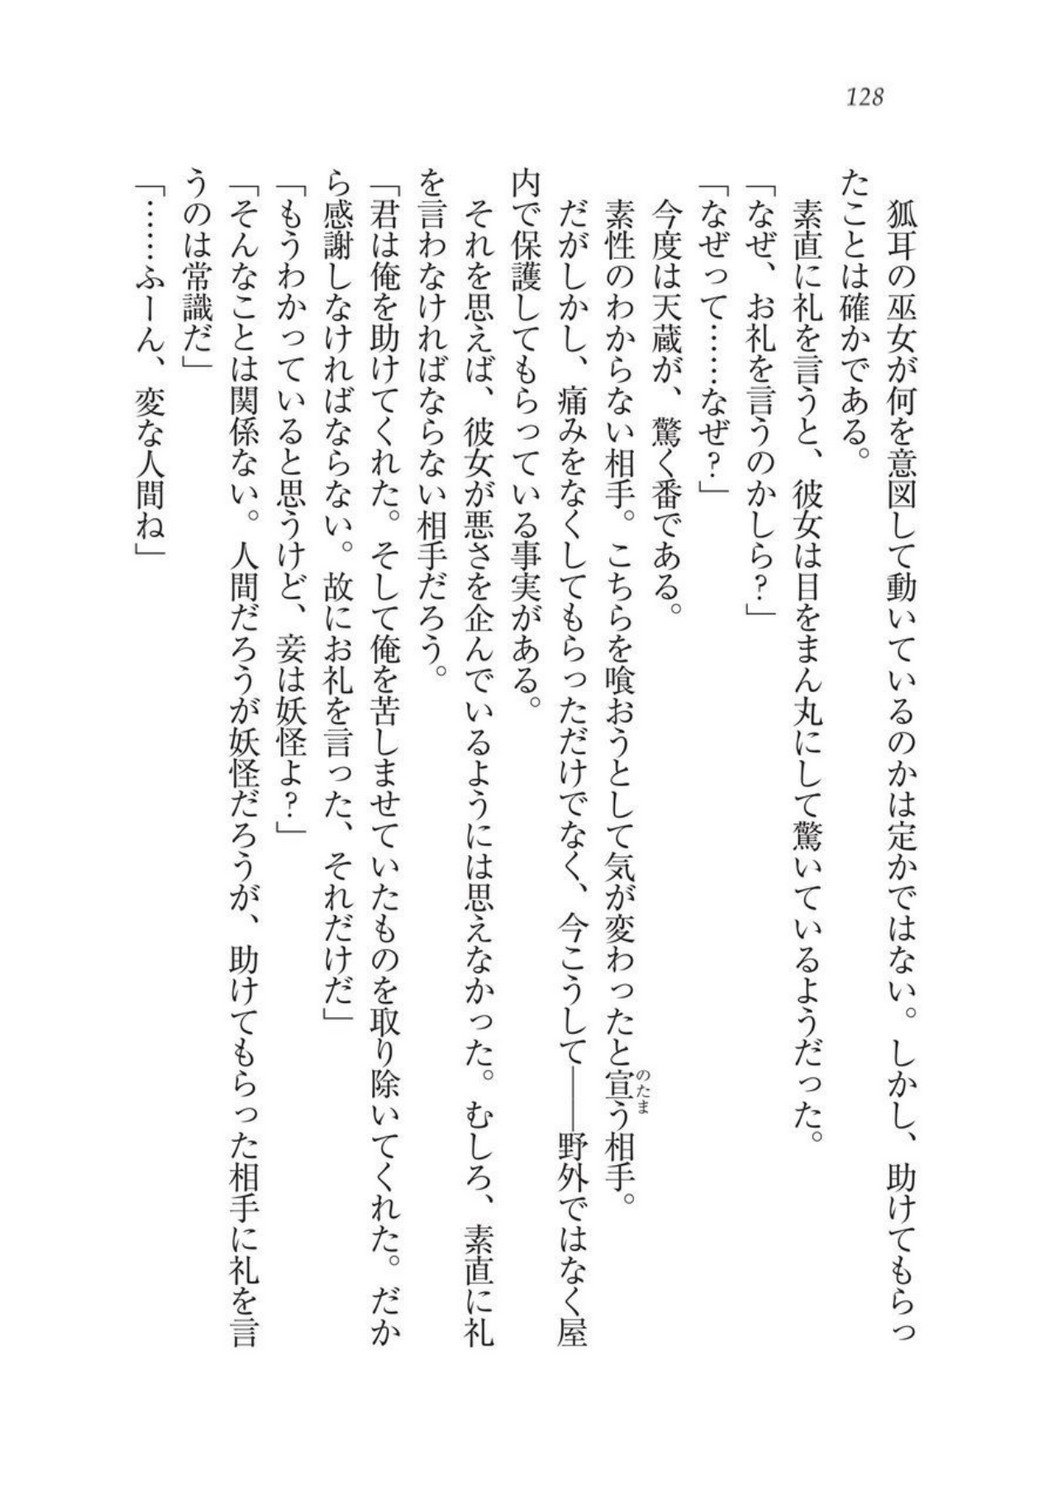 128
狐耳の巫女が何を意図して動いているのかは定かではない。しかし、助けてもらっ
たことは確かである。
素直に礼を言うと、彼女は目をまん丸にして驚いているようだった。
「なぜ、お礼を言うのかしら?」
「なぜって……なぜ?」
今度は天蔵が、驚く番である。
素性のわからない相手。こちらを喰おうとして気が変わったと宣う相手。
のたま
だがしかし、痛みをなくしてもらっただけでなく、今こうして――野外ではなく屋
内で保護してもらっている事実がある。
それを思えば、彼女が悪さを企んでいるようには思えなかった。むしろ、素直に礼
を言わなければならない相手だろう。
「君は俺を助けてくれた。そして俺を苦しませていたものを取り除いてくれた。だか
ら感謝しなければならない。故にお礼を言った、それだけだ」
「もうわかっていると思うけど、妾は妖怪よ?」
「そんなことは関係ない。人間だろうが妖怪だろうが、助けてもらった相手に礼を言
うのは常識だ」
「……ふーん、変な人間ね」